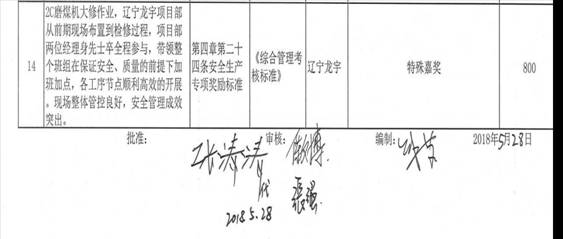 2C磨煤机大修作业，辽宁龙宇项目部
从前期现场布置到检修过程，项目部
两位经理身先士卒全程参与，带领整
14 个班组在保证安全、质量的前提下加
班加点，各工序节点顺利高效的开展
。现场整体管控良好，安全管理成效
突出。
第四章第二十
四条安全生产
专项奖励标准
《综合管理考
核标准》
辽宁龙宇
特殊嘉奖
800
批准： 审核： 编制： 2018年5月28日
张涛涛
代
2018.5.28
张强